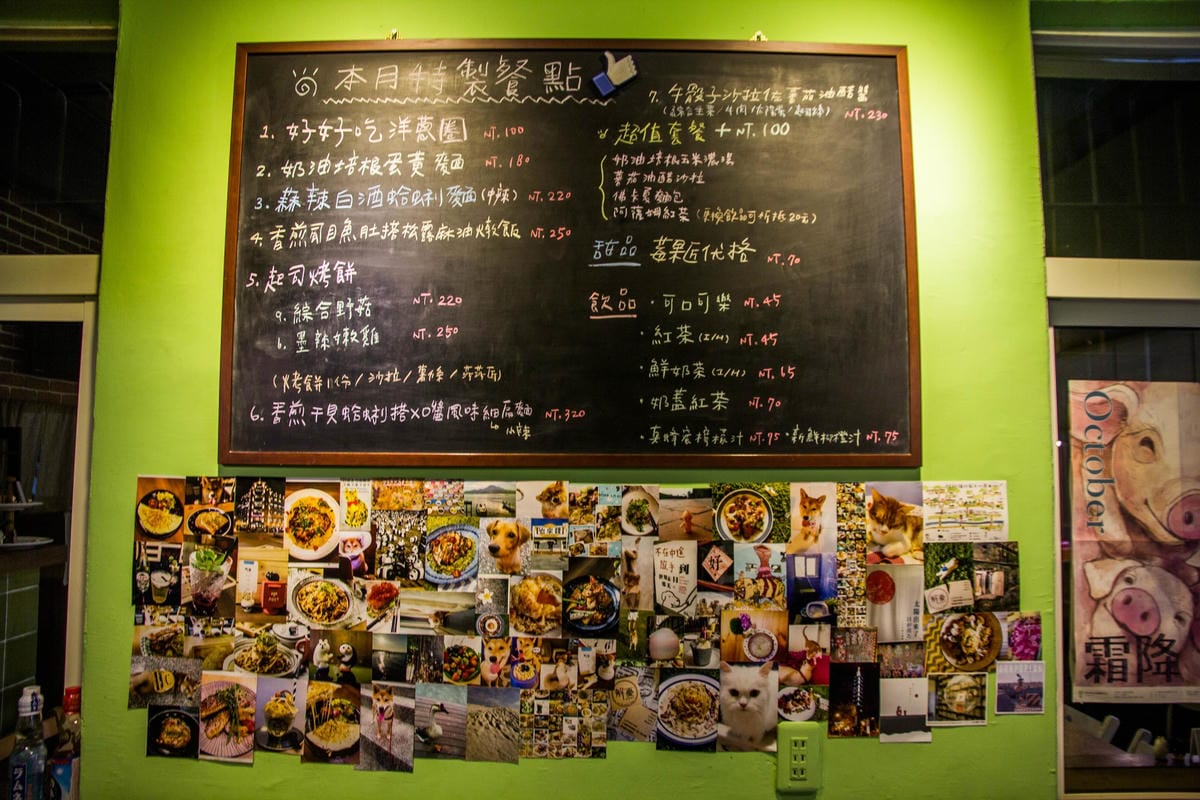 本月特製餐點
1. 好好吃洋蔥圈 NT.100
2. 奶油培根蛋黃麵 NT.180
3. 蒜辣白酒蛤蜊麵(中辣) NT.220
4. 香煎虱目魚肚搭松露麻油燉飯 NT.250
5. 起司烤餅
a. 綜合野菇 NT.220
b. 墨辣嫩雞 NT.250
(烤餅1份/沙拉/薯條/莎莎醬)
6. 香煎干貝蛤蜊搭XO醬風味細扁麵 NT.320
小辣
7. 牛骰子沙拉佐蕃茄油醋醬
NT.230
超值套餐+NT.100
奶油培根玉米濃湯
蕃茄油醋沙拉
佛卡夏麵包
阿薩姆紅茶(更換飲品可折抵20元)
甜品 莓果優格 NT.70
飲品 ·可口可樂 NT.45
·紅茶(I/H) NT.45
·鮮奶茶(I/H) NT.65
·奶蓋紅茶 NT.70
檸檬汁 NT.75 ·新鮮柳橙汁 NT.75
October
霜降
好
ラムネ